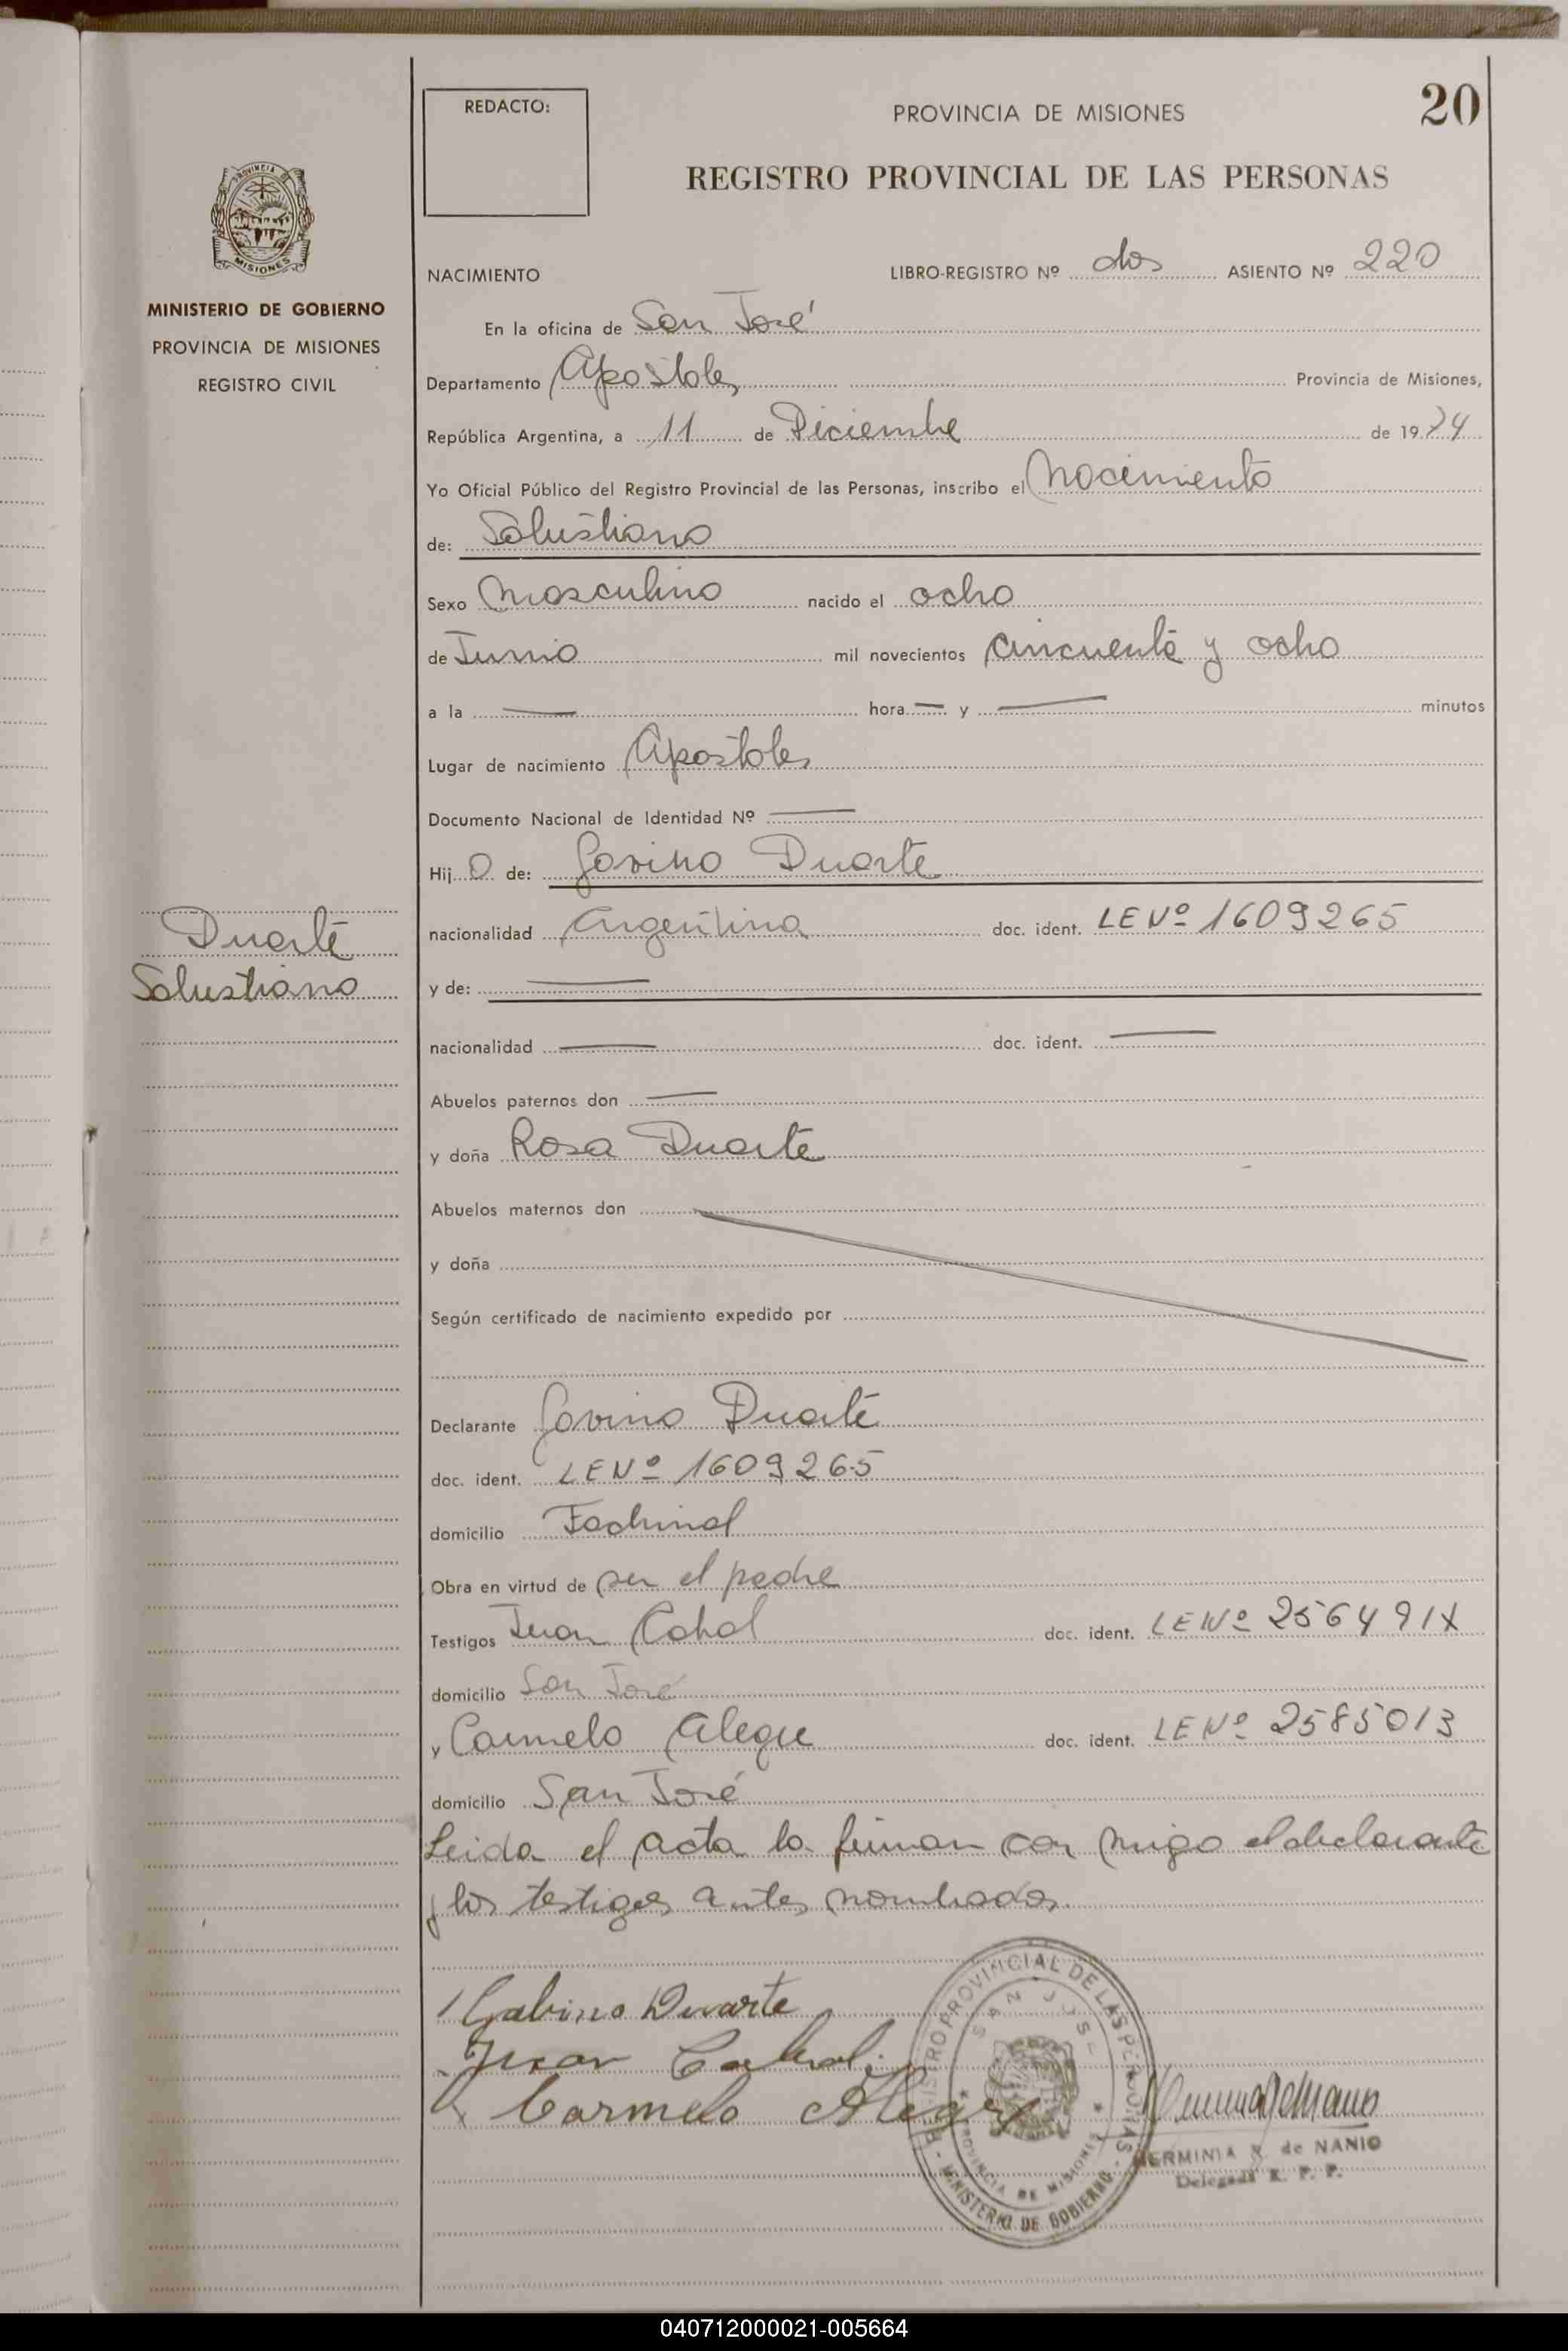 REDACTO:
PROVINCIA DE MISIONES
20
REGISTRO PROVINCIAL DE LAS PERSONAS
PROVINCIA DE
MISIONES
MINISTERIO DE GOBIERNO
PROVINCIA DE MISIONES
REGISTRO CIVIL
NACIMIENTO LIBRO-REGISTRO Nº dos ASIENTO Nº 220
En la oficina de San José
Departamento Apostoles Provincia de Misiones,
República Argentina, a 11 de Diciembre de 1974
Yo Oficial Público del Registro Provincial de las Personas, inscribo el Nacimiento
de: Salustiano
Sexo Masculino nacido el ocho
de Junio mil novecientos cincuenta y ocho
a la — hora — y — minutos
Lugar de nacimiento Apostoles
Documento Nacional de Identidad Nº —
Hij o de: Gavino Duarte
Duarte
Salustiano
nacionalidad Argentina doc. ident. LE Nº 1609265
y de: —
nacionalidad — doc. ident. —
Abuelos paternos don —
y doña Rosa Duarte
Abuelos maternos don
y doña
Según certificado de nacimiento expedido por
Declarante Gavino Duarte
doc. ident. LE Nº 1609265
domicilio Fachinal
Obra en virtud de ser el padre
Testigos Juan Cabral doc. ident. LE Nº
domicilio San José
y Carmelo Alegre doc. ident. LE Nº 2585013
domicilio San José
Leida el acta la firman con migo el declarante
y los testigos antes nombrados.
Gabino Duarte
Juan Cabral.
Carmelo Alegre
REGISTRO PROVINCIAL DE LAS PERSONAS - MINISTERIO DE GOBIERNO -
SAN JOSE
PROVINCIA DE MISIONES
HERMINIA de NANIO
Delegada R. P. P.
040712000021-005664